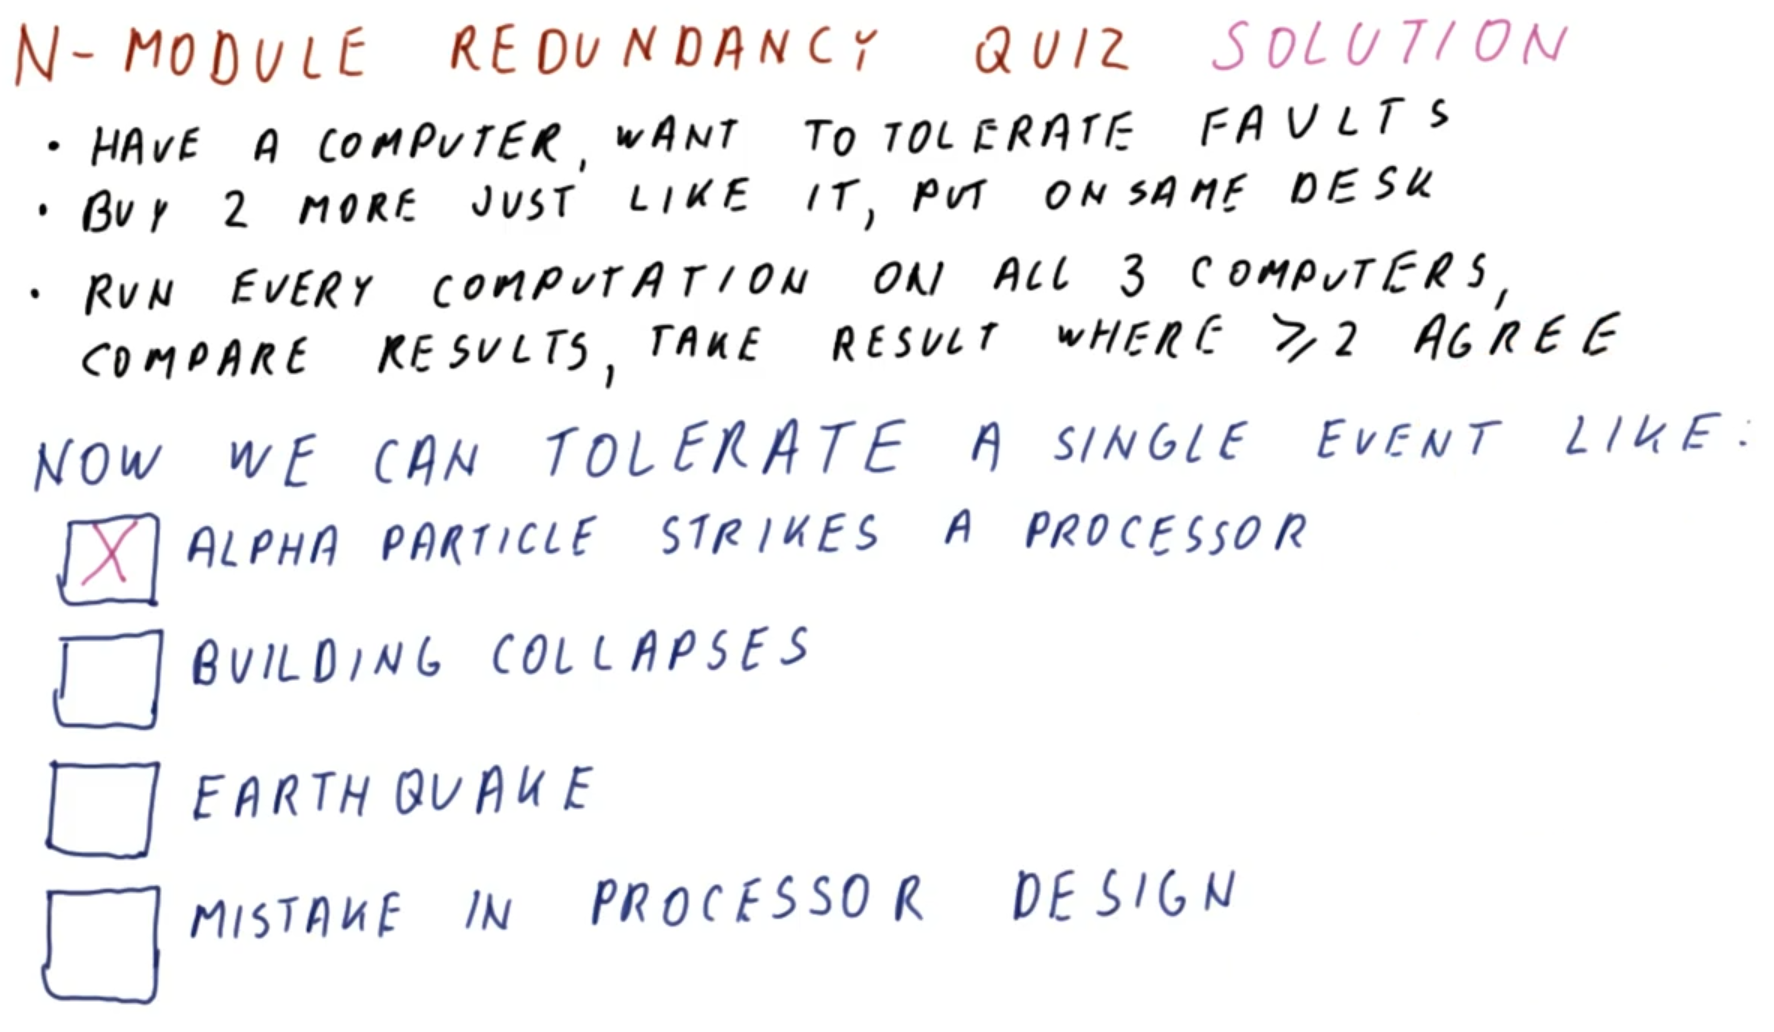 N-MODULE REDUNDANCY QUIZ SOLUTION
• HAVE A COMPUTER, WANT TO TOLERATE FAULTS
• BUY 2 MORE JUST LIKE IT, PUT ON SAME DESK
• RUN EVERY COMPUTATION ON ALL 3 COMPUTERS,
COMPARE RESULTS, TAKE RESULT WHERE ≥2 AGREE
NOW WE CAN TOLERATE A SINGLE EVENT LIKE:
X ALPHA PARTICLE STRIKES A PROCESSOR
BUILDING COLLAPSES
EARTHQUAKE
MISTAKE IN PROCESSOR DESIGN